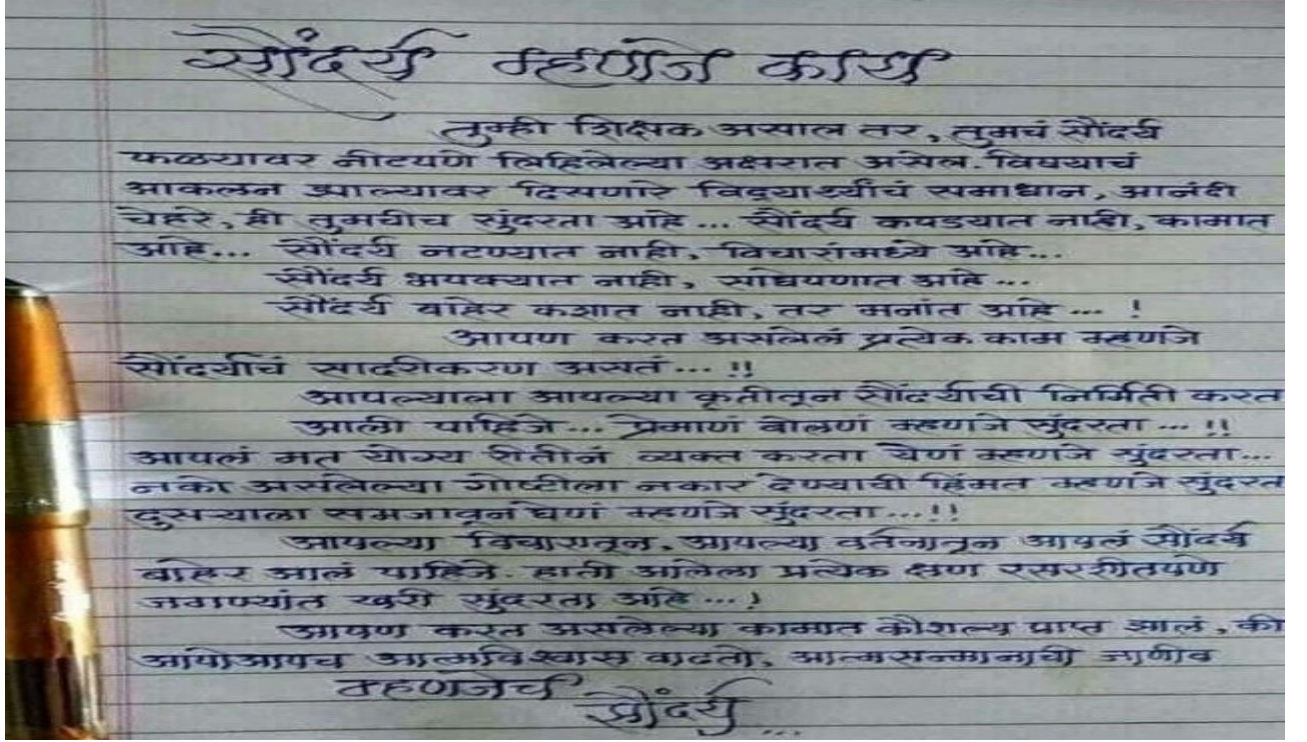 सौंदर्य म्हणजे काय
तुम्ही शिक्षक असाल तर, तुमचं सौंदर्य
फळ्यावर नीटपणे लिहिलेल्या अक्षरात असेल. विषयाचं
आकलन झाल्यावर दिसणारे विद्यार्थ्यांचं समाधान, आनंदी
चेहरे, ही तुमचीच सुंदरता आहे... सौंदर्य कपडयात नाही, कामात
आहे... सौंदर्य नटण्यात नाही, विचारांमध्ये आहे...
सौंदर्य भपक्यात नाही, साधेपणात आहे...
सौंदर्य बाहेर कशात नाही, तर मनांत आहे ... !
आपण करत असलेलं प्रत्येक काम म्हणजे
सौंदर्याचं सादरीकरण असतं... !!
आपल्याला आपल्या कृतीतून सौंदर्याची निर्मिती करत
आली पाहिजे... प्रेमाणं बोलणं म्हणजे सुंदरता ... !!
आपलं मत योग्य रीतीनं व्यक्त करता येणं म्हणजे सुंदरता...
नको असलेल्या गोष्टीला नकार देण्याची हिंमत म्हणजे सुंदरत
दुसऱ्याला समजावून घेणं म्हणजे सुंदरता...!!
आपल्या विचारातून, आपल्या वर्तनातून आपलं सौंदर्य
बाहेर आलं पाहिजे. हाती आलेला प्रत्येक क्षण रसरशीतपणे
जगण्यांत खरी सुंदरता आहे ...!
आपण करत असलेल्या कामात कौशल्य प्राप्त झालं, की
आपोआपच आत्मविश्वास वाढतो, आत्मसन्मानाची जाणीव
म्हणजेच
सौंदर्य...